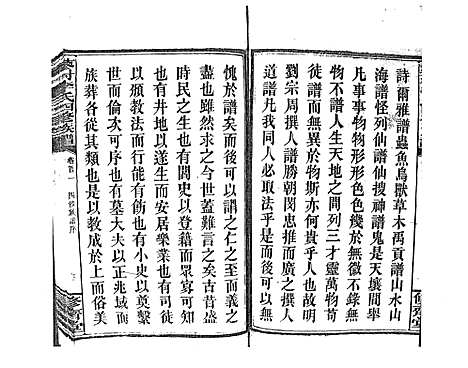 詩爾雅譜蟲魚鳥獸草木禹貢譜山水山
海譜怪列仙譜仙搜神譜鬼是天壤間舉
凡事事物物形形色色幾於無徵不錄無
物不譜人生天地之間列三才靈萬物苟
徒譜而無異於物斯亦何貴人也故明
劉宗周撰人譜勝朝閔忠推而廣之撰人
譜凡我同人必取法乎是時後可以無
愧於譜矣而後可以謂之仁之至而義之
盡也雖然求之今世蓋難言之矣古昔盛
時民之生也有閭史以登籍而眾寡可知
也有井地以遂生而安居樂業也有司徒
以頒教法而行能有攷也有小史以奠繫
世而倫次可序也有墓大夫以正兆域而
族葬各從其類也是以教成於上而俗美
修齊堂